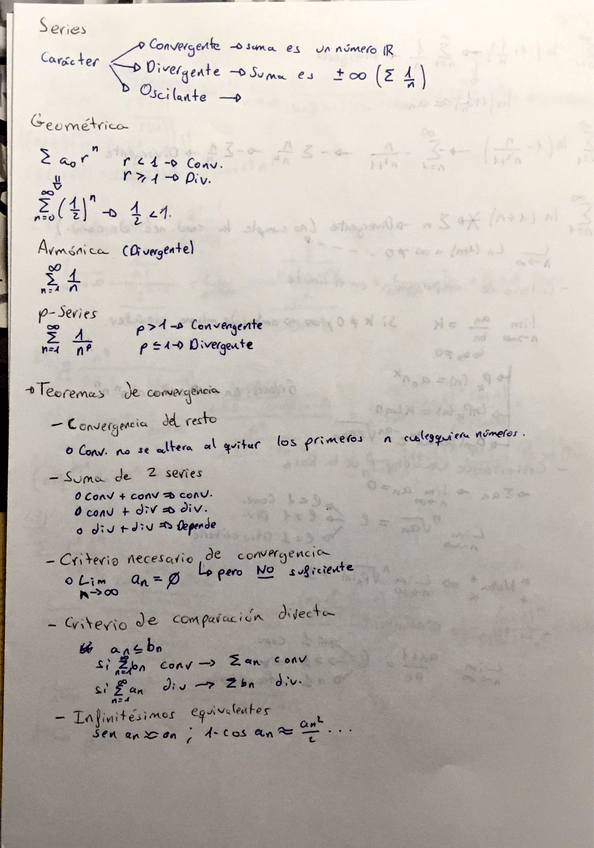 Series
Carácter
→ Convergente → suma es un número ℝ
→ Divergente → Suma es ± ∞ (Σ 1/n)
→ Oscilante →
Geométrica
Σ a₀ rⁿ r < 1 → Conv.
r ≥ 1 → Div.
⇓
Σ_{n=0}^{∞} (1/2)ⁿ → 1/2 < 1.
Armónica (Divergente)
Σ_{n=1}^{∞} 1/n
p-Series
Σ_{n=1}^{∞} 1/n^p p > 1 → Convergente
p ≤ 1 → Divergente
→ Teoremas de convergencia
- Convergencia del resto
o Conv. no se altera al quitar los primeros n cualesquiera números.
- Suma de 2 series
o conv + conv ⇒ conv.
o conv + div ⇒ div.
o div + div ⇒ Depende
- Criterio necesario de convergencia
o Lim_{n→∞} an = Ø ↳ pero NO suficiente
- Criterio de comparación directa
an ≤ bn
si Σ_{n=1}^{∞} bn conv → Σ an conv
si Σ_{n=1}^{∞} an div → Σ bn div.
- Infinitésimos equivalentes
sen an ≈ an ; 1-cos an ≈ an²/2 ...